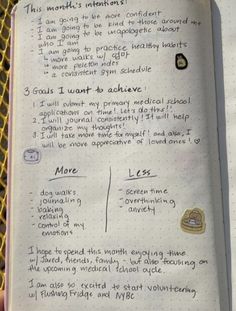 This month's intentions:
- I am going to be more confident
- I am going to be kind to those around me
- I am going to be unapologetic about
who I am
- I am going to practice healthy habits
↳ more walks w/
↳ more peleton rides
↳ a consistent gym schedule
3 Goals I want to achieve:
1. I will submit my primary medical school
applications on time! Let's do this!!
2. I will journal consistently! It will help
organize my thoughts!
3. I will take more time for myself! and also, I
will be more appreciative of loved ones! ♡
More
Less
- dog walks
- journaling
- baking
- relaxing
- control of my
emotions
- screentime
- overthinking
- anxiety
I hope to spend this month enjoying time
w/ Jared, friends, family - but also focusing on
the upcoming medical school cycle.
I am also so excited to start volunteering
w/ Flushing Fridge and NYBC